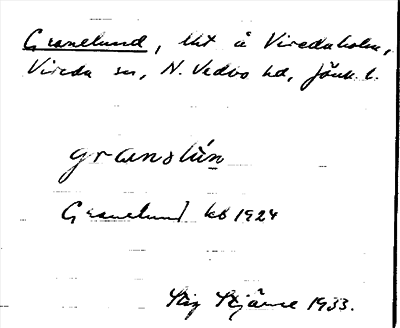 Granelund, lht å Viredaholm,
Vireda sn, N. Vedbo hd, Jönk. l.
granəlún
Granelund kb 1924
Stig Stjärne 1933.